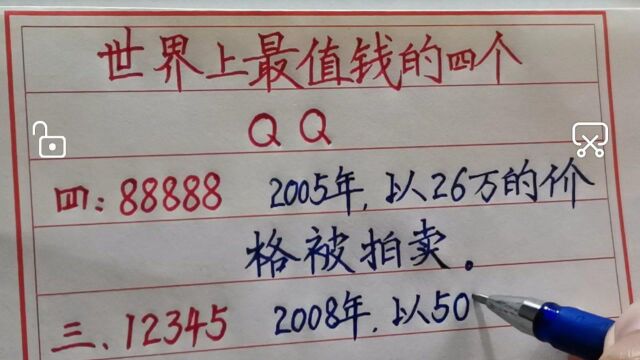 世界上最值钱的四个
QQ
四：88888 2005年，以26万的价
格被拍卖。
三、12345 2008年，以50